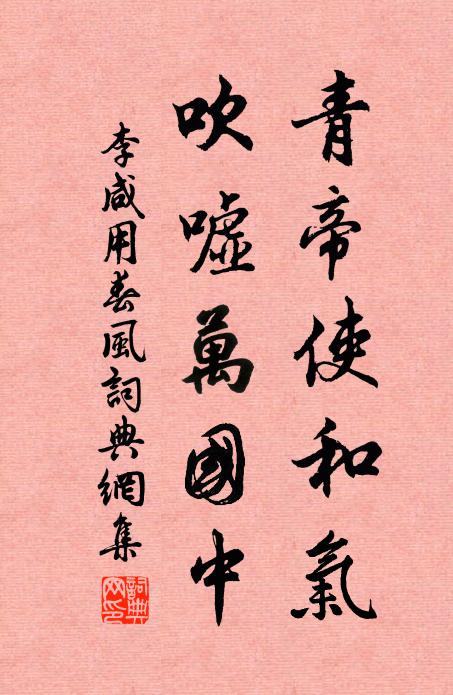 青帝使和氣
吹噓萬國中
李咸用春風詞典網集
詞典網印